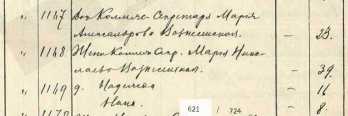 " 1147 Дочь Коллеж. Секретаря Марія
Александрова Вознесенская. — 23.
" 1148 Жена Коллеж. Секр. Марія Нико-
лаева Вознесенская. — 39.
" 1149 д. Надежда — 11
" Нина. — 8.
621 / 724